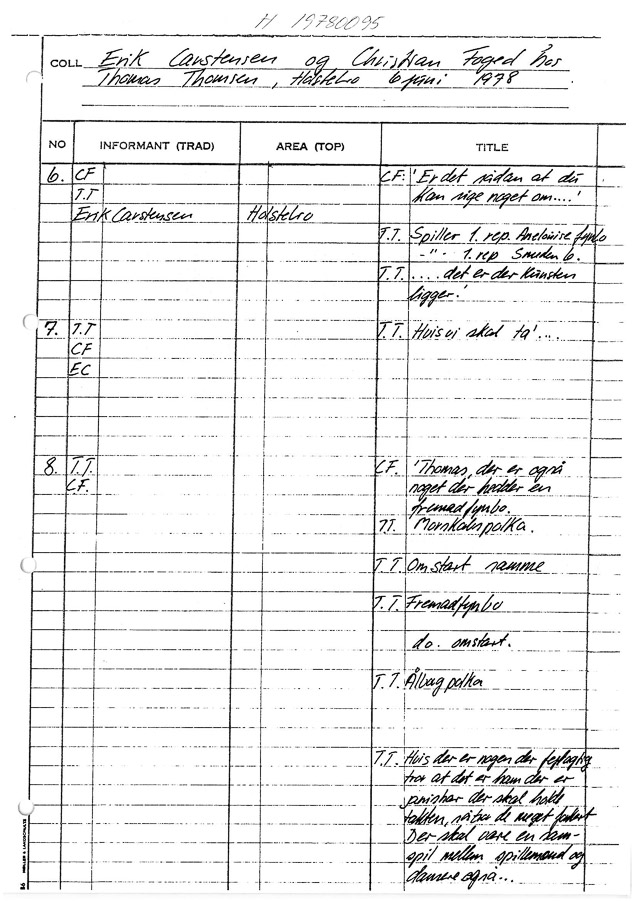 H 19780095
COLL Erik Carstensen og Christian Foged hos
Thomas Thomsen, Holstebro 6 juni 1978
NO INFORMANT (TRAD) AREA (TOP) TITLE
6. CF CF: 'Er det sådan at du
T.T kan sige noget om....'
Erik Carstensen Holstebro
T.T. Spiller 1. rep. Anelouise fynbo
-"- 1. rep Snurden 6.
T.T. .... det er der kunsten
ligger.'
7. T.T T.T. Hvis vi skal ta'....
CF
EC
8. T.T. CF. 'Thomas, der er også
CF. noget der hedder en
fremadfynbo.
TT. Monskalspolka.
T.T. Omstart samme
T.T. Fremadfynbo
do. omstart.
T.T. Ålbæg polka
T.T. Hvis der er nogen der fejlagtig
tror at det er ham der er
pauisher der skal holde
takten, så tror de meget forkert
Der skal være en sam-
spil mellem spillemand og
dansere også...
86 MØLLER & LANDSCHULTZ